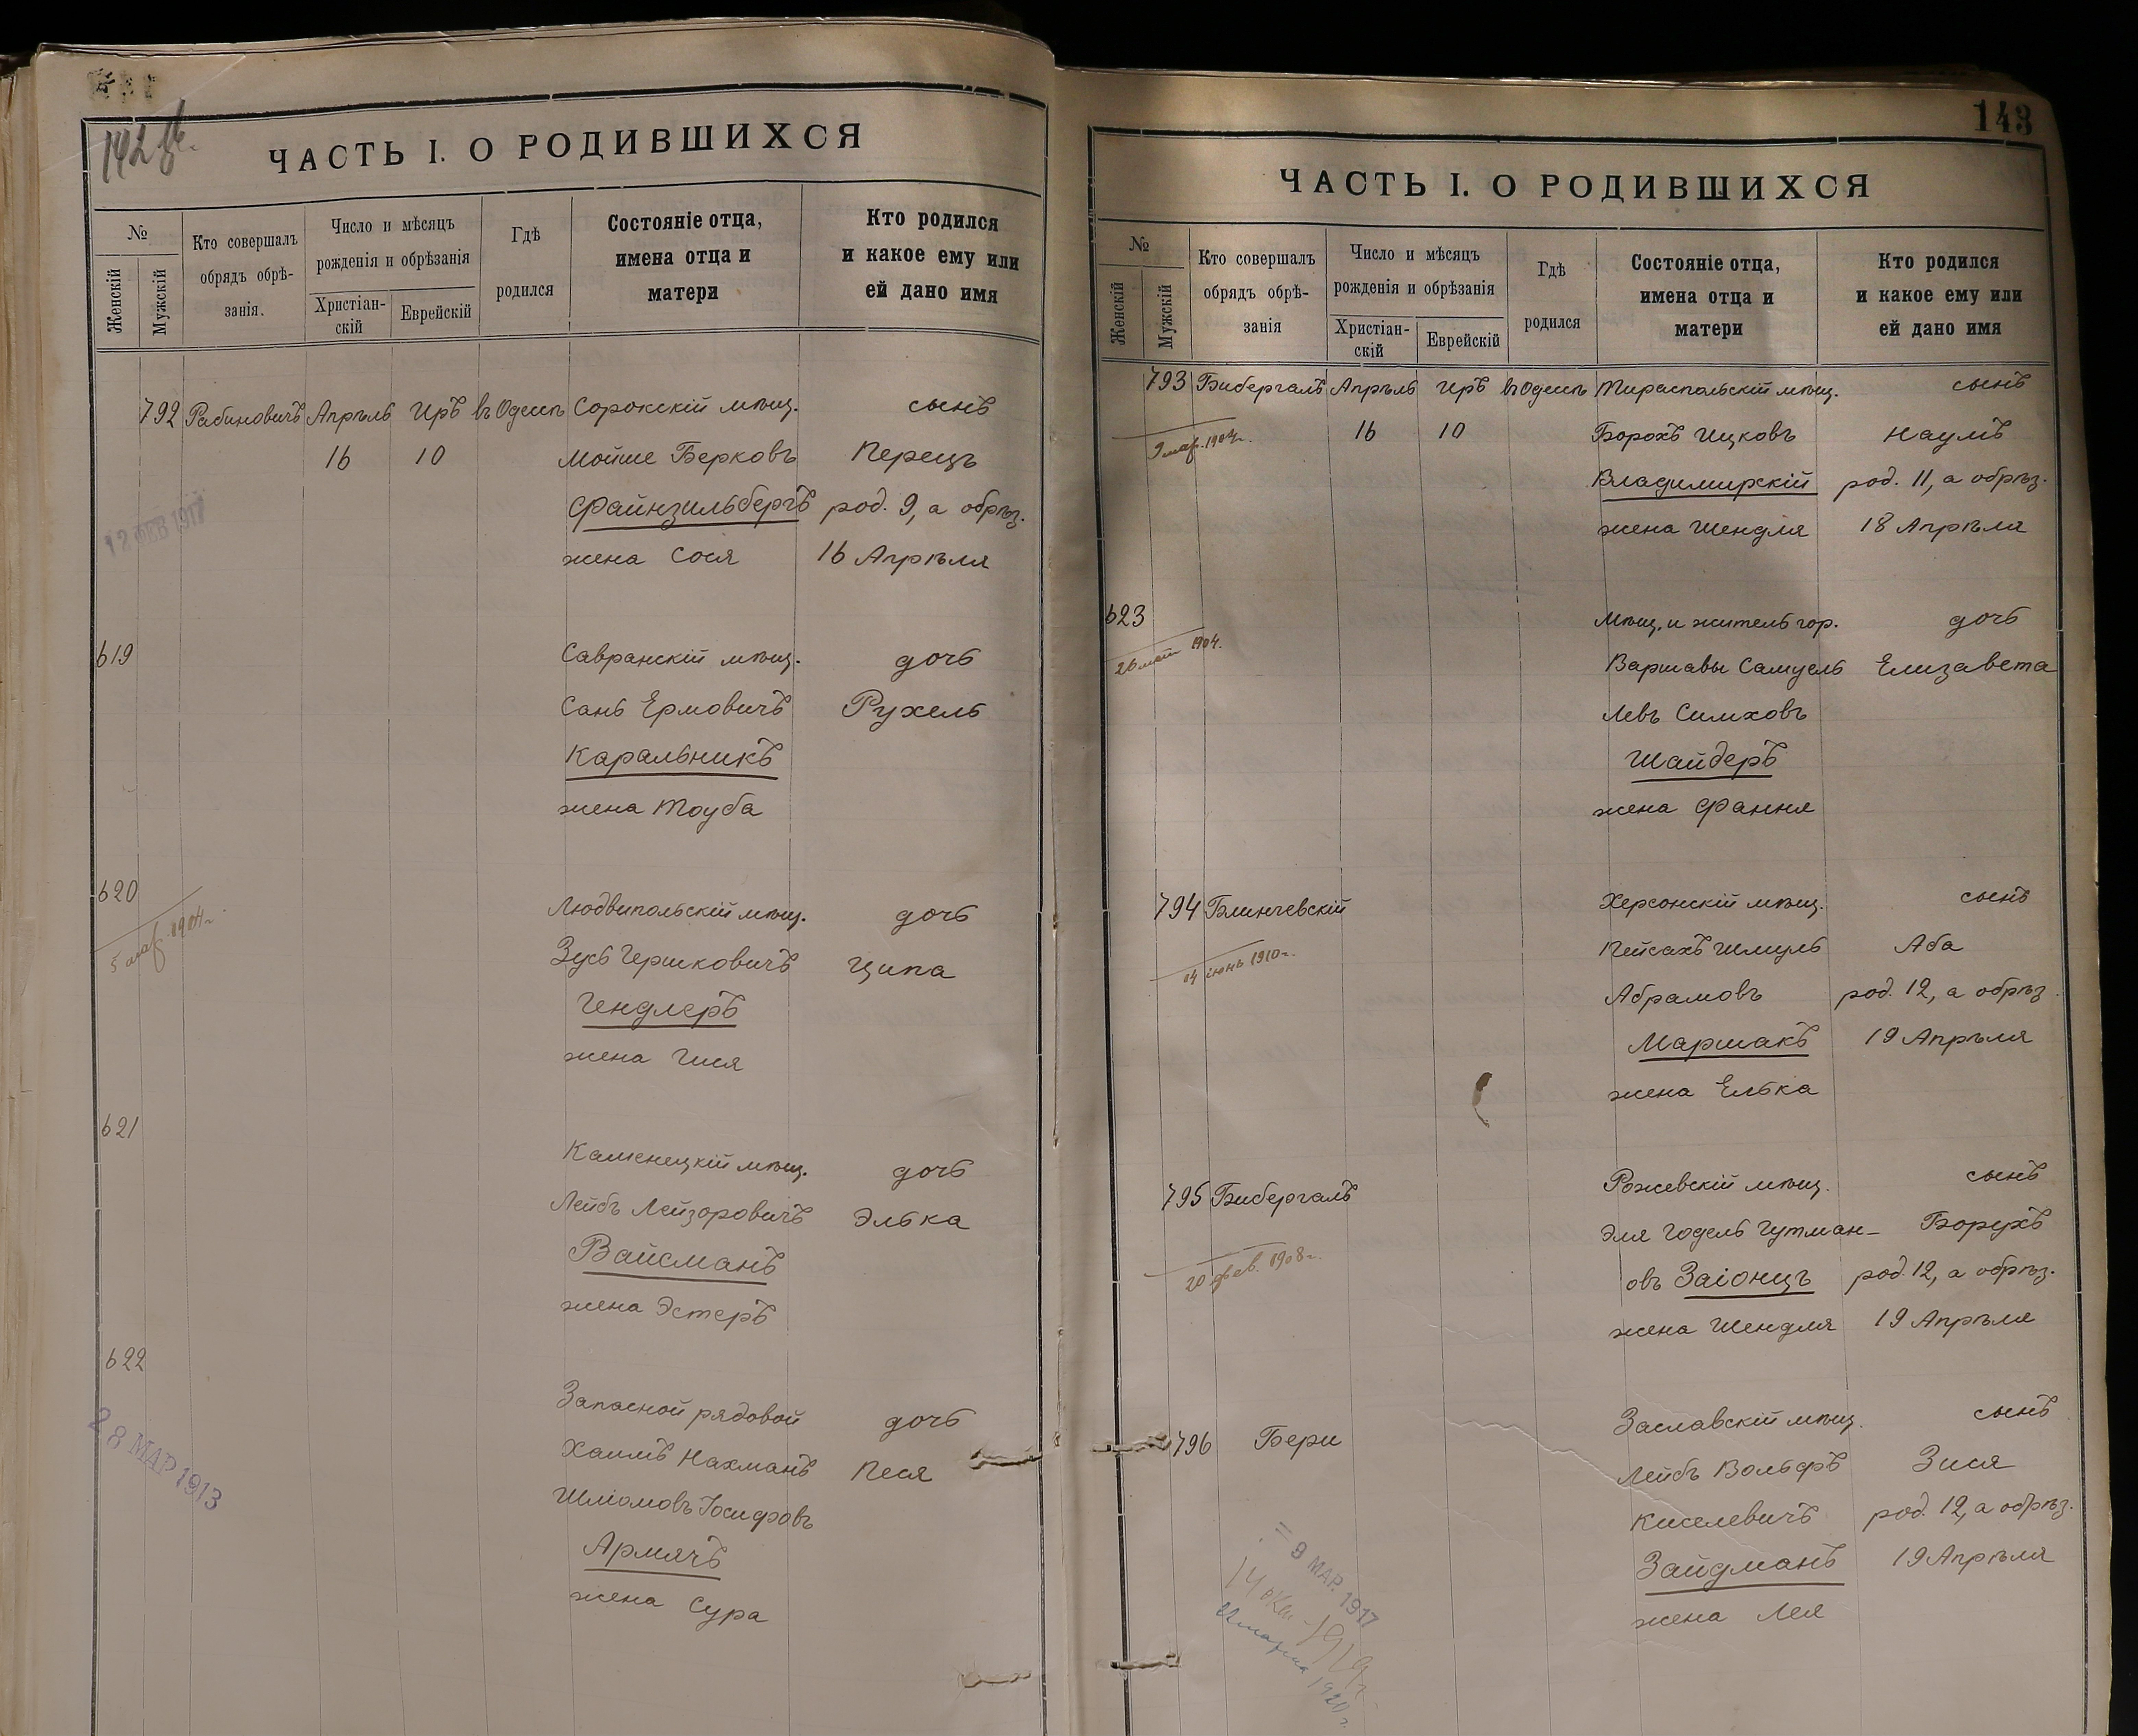 142 об.
ЧАСТЬ I. О РОДИВШИХСЯ
№
Женскій
Мужскій
Кто совершалъ
обрядъ обрѣ-
занія.
Число и мѣсяцъ
рожденія и обрѣзанія
Христіан-
скій
Еврейскій
Гдѣ
родился
Состояніе отца,
имена отца и
матери
Кто родился
и какое ему или
ей дано имя
792 Рабиновичъ Апрѣль Иръ въ Одессѣ Сорокскій мѣщ. сынъ
16 10 Мойше Берковъ Перецъ
Файнзильбергъ род. 9, а обрѣз.
12 ФЕВ 1917
жена Сося 16 Апрѣля
619 Савранскій мѣщ. дочь
Сань Ермовичъ Рухель
Каральникъ
жена Тоуба
620 Людвипольскій мѣщ. дочь
5 мар. 1904 г.
Зусь Гершковичъ Ципа
Гендлеръ
жена Гися
621 Каменецкій мѣщ. дочь
Лейбъ Лейзоровичъ Элька
Вайсманъ
жена Эстеръ
622 Запасной рядовой дочь
28 МАР 1913
Хаимъ Нахманъ Песя
Шліомовъ Іосифовъ
Армячъ
жена Сура
143
ЧАСТЬ I. О РОДИВШИХСЯ
№
Женскій
Мужскій
Кто совершалъ
обрядъ обрѣ-
занія
Число и мѣсяцъ
рожденія и обрѣзанія
Христіан-
скій
Еврейскій
Гдѣ
родился
Состояніе отца,
имена отца и
матери
Кто родился
и какое ему или
ей дано имя
793 Бибергалъ Апрѣль Иръ въ Одессѣ Тираспольскій мѣщ. сынъ
9 мар. 1904 г. 16 10 Борохъ Ицковъ Наумъ
Владимирскій род. 11, а обрѣз.
жена Шендля 18 Апрѣля
623 Мѣщ. и житель гор. дочь
26 1904.
Варшавы Самуель Елизавета
Левъ Симховъ
Шайдеръ
жена Фання
794 Блинчевскій Херсонскій мѣщ. сынъ
14 іюнь 1910 г.
Пейсахъ Шмуль Аба
Абрамовъ род. 12, а обрѣз.
Маршакъ 19 Апрѣля
жена Елька
795 Бибергалъ Рожевскій мѣщ. сынъ
Эля Годель Гутман- Борухъ
20 фев. 1908 г.
овъ Заіонцъ род. 12, а обрѣз.
жена Шендля 19 Апрѣля
796 Бери Заславскій мѣщ. сынъ
Лейбъ Вольфъ Зися
Киселевичъ род. 12, а обрѣз.
Зайдманъ 19 Апрѣля
жена Лея
= 9 МАР. 1917
14 окт - 1919 г.
марта 1920 г.